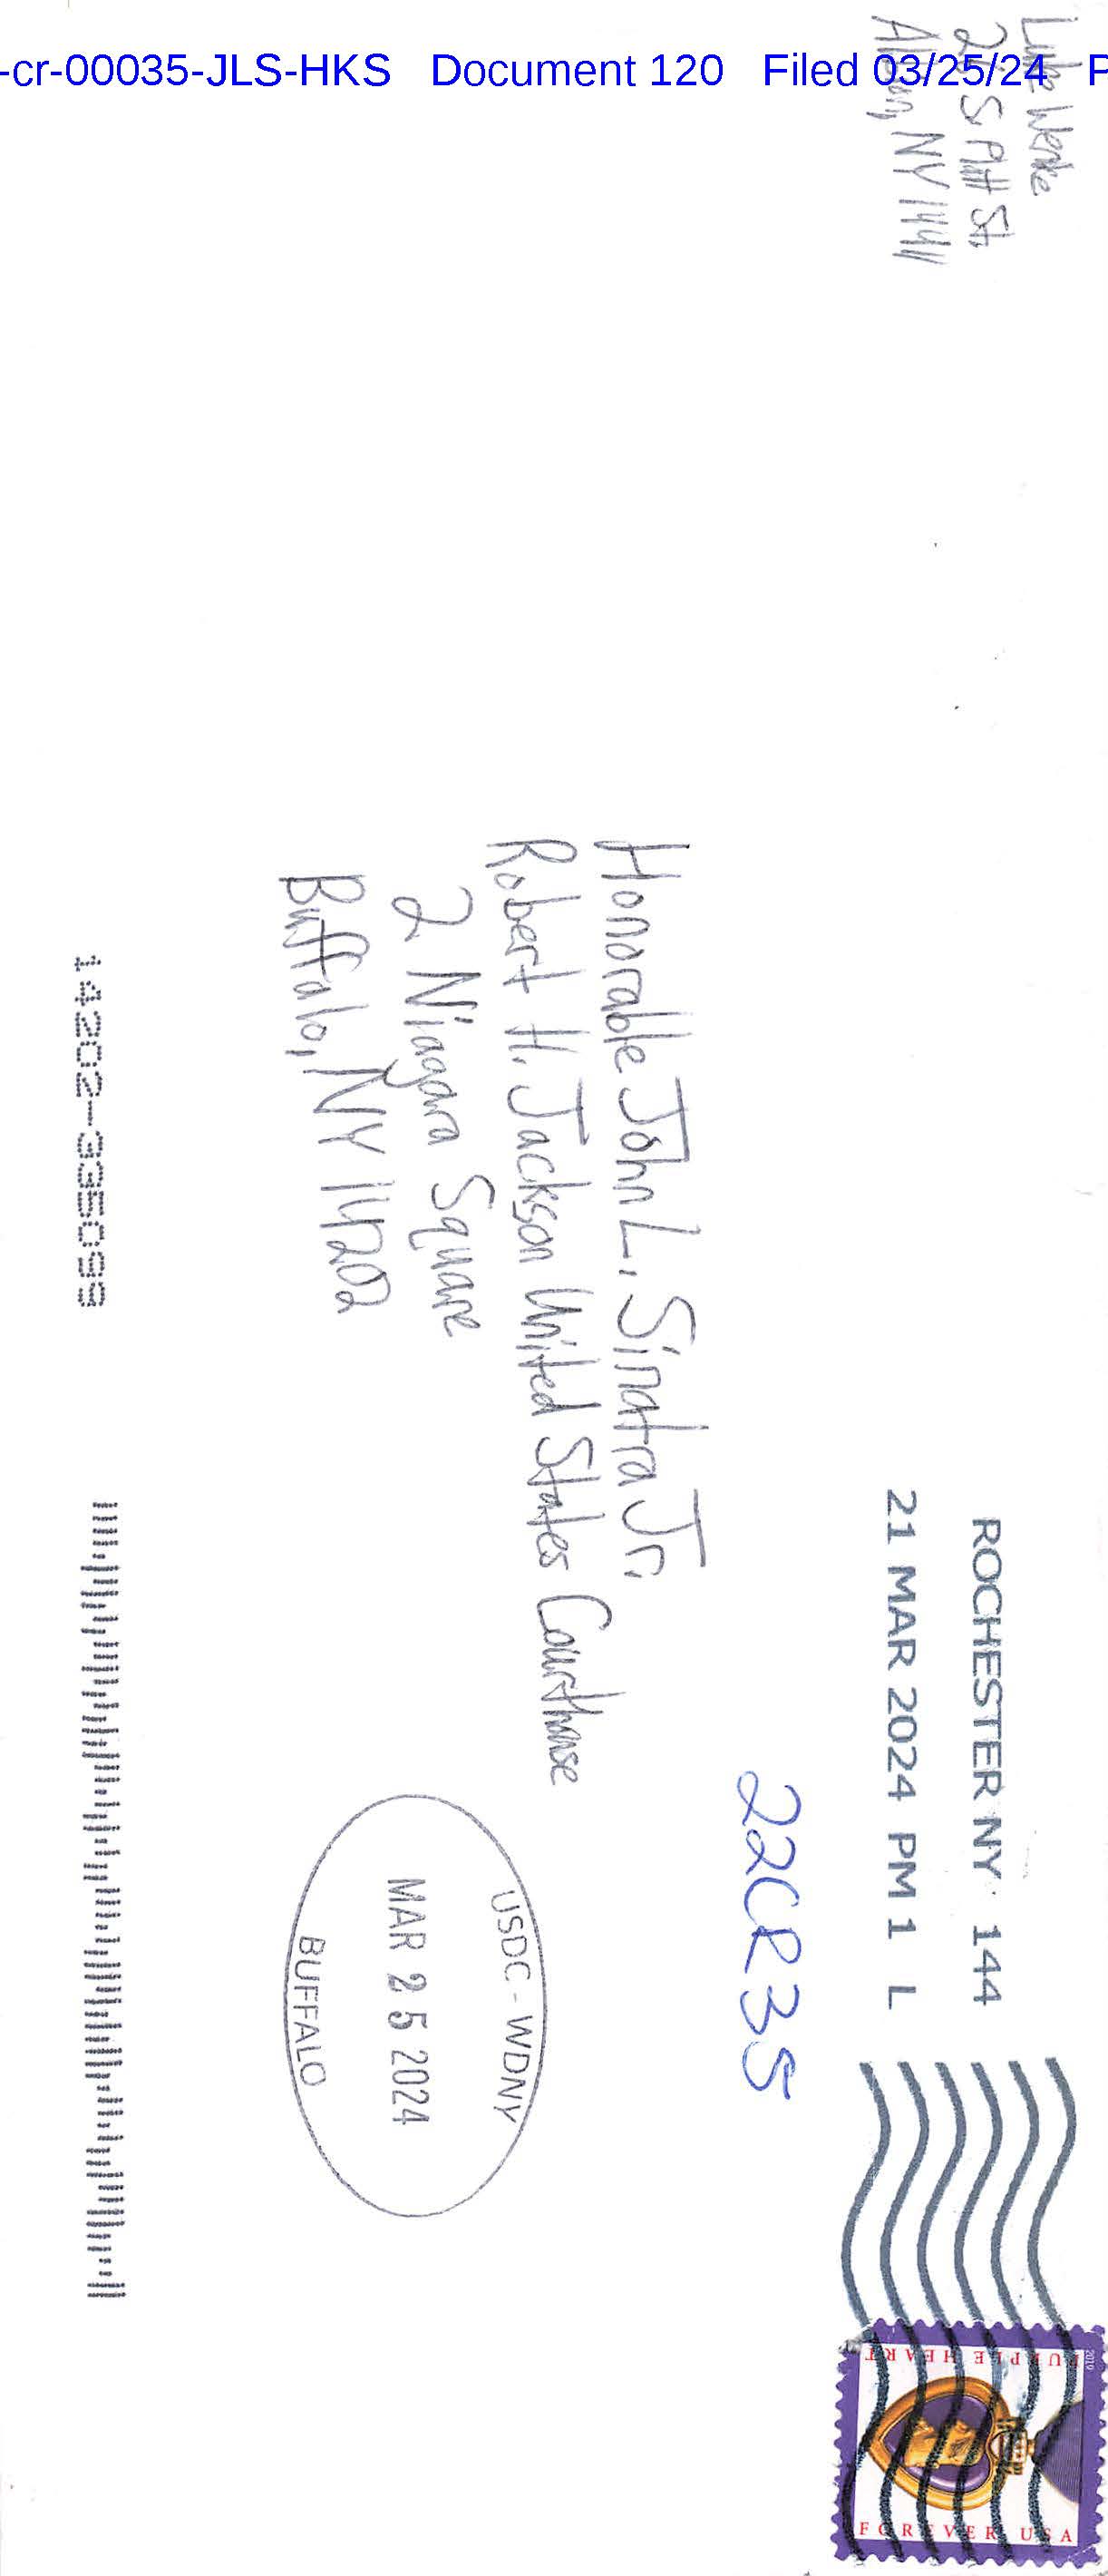 -cr-00035-JLS-HKS Document 120 Filed 03/25/24 P
Luke Wenke
S Platt St.
Albion, NY 14411
ROCHESTER NY 144
21 MAR 2024 PM 1 L
2019
PURPLE HEART
FOREVER USA
22CR35
Honorable John L. Sinatra Jr.
Robert H. Jackson United States Courthouse
2 Niagara Square
Buffalo, NY 14202
USDC - WDNY
MAR 25 2024
BUFFALO
14202-335099